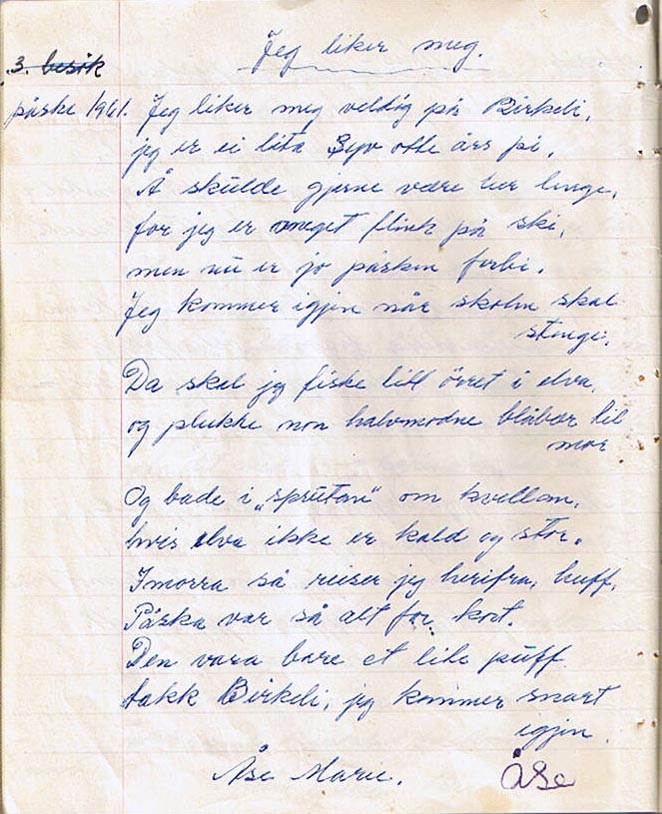 Jeg liker meg.
3. besøk
påske 1961. Jeg liker meg veldig på Birkeli,
jeg er ei lita syv otte års pi.
Å skulde gjerne være her lenge,
for jeg er meget flink på ski,
men nu er jo påsken forbi.
Jeg kommer igjen når skolen skal
stenge.
Da skal jeg fiske litt örret i elva,
og plukke non halvmodne blåbær til
mor
Og bade i "sprutan" om kvellan,
hvis elva ikke er kald og stor.
Imorra så reiser jeg herifra, huff,
Påska var så alt for kort.
Den vara bare et lite puff
takk Birkeli, jeg kommer snart
igjen.
Åse Marie. Åse